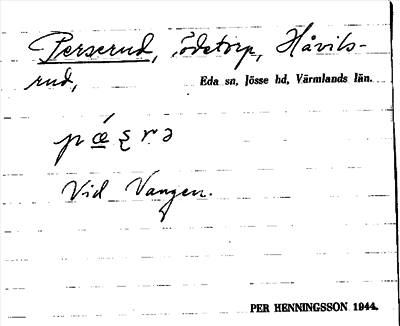 Perserud, ödetorp, Håvils-
rud,
Eda sn, Jösse hd, Värmlands län.
pǽʂrə
Vid Vangen.
PER HENNINGSSON 1944.